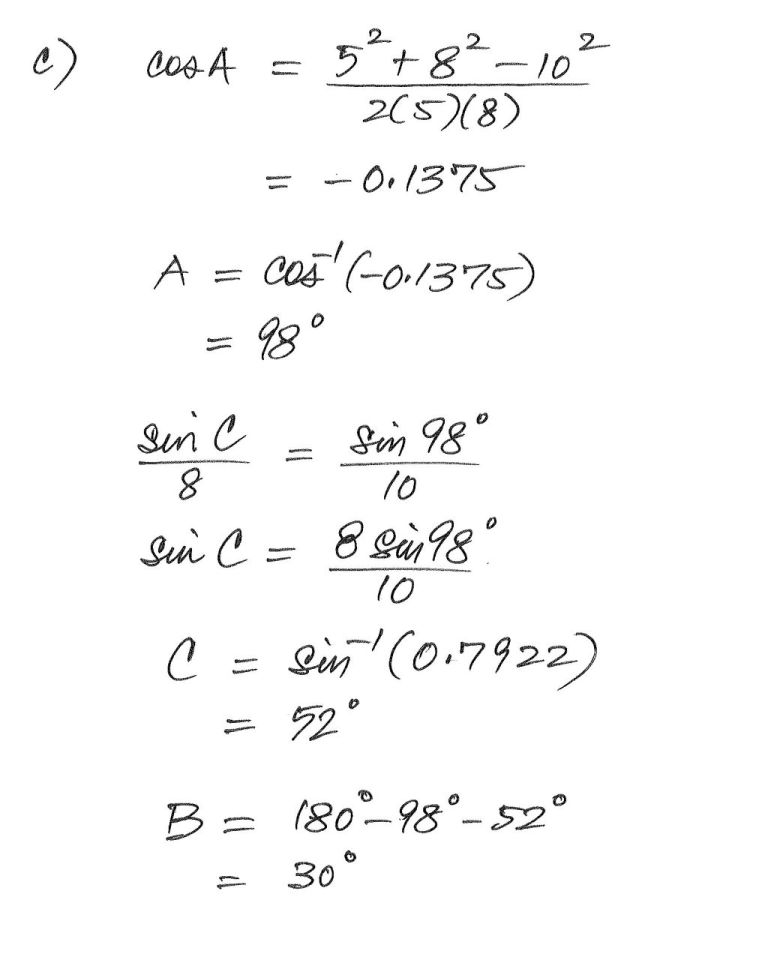 c) cos A = 5² + 8² − 10² / 2(5)(8)
= −0.1375
A = cos⁻¹(−0.1375)
= 98°
sin C / 8 = sin 98° / 10
sin C = 8 sin 98° / 10
C = sin⁻¹(0.7922)
= 52°
B = 180° − 98° − 52°
= 30°